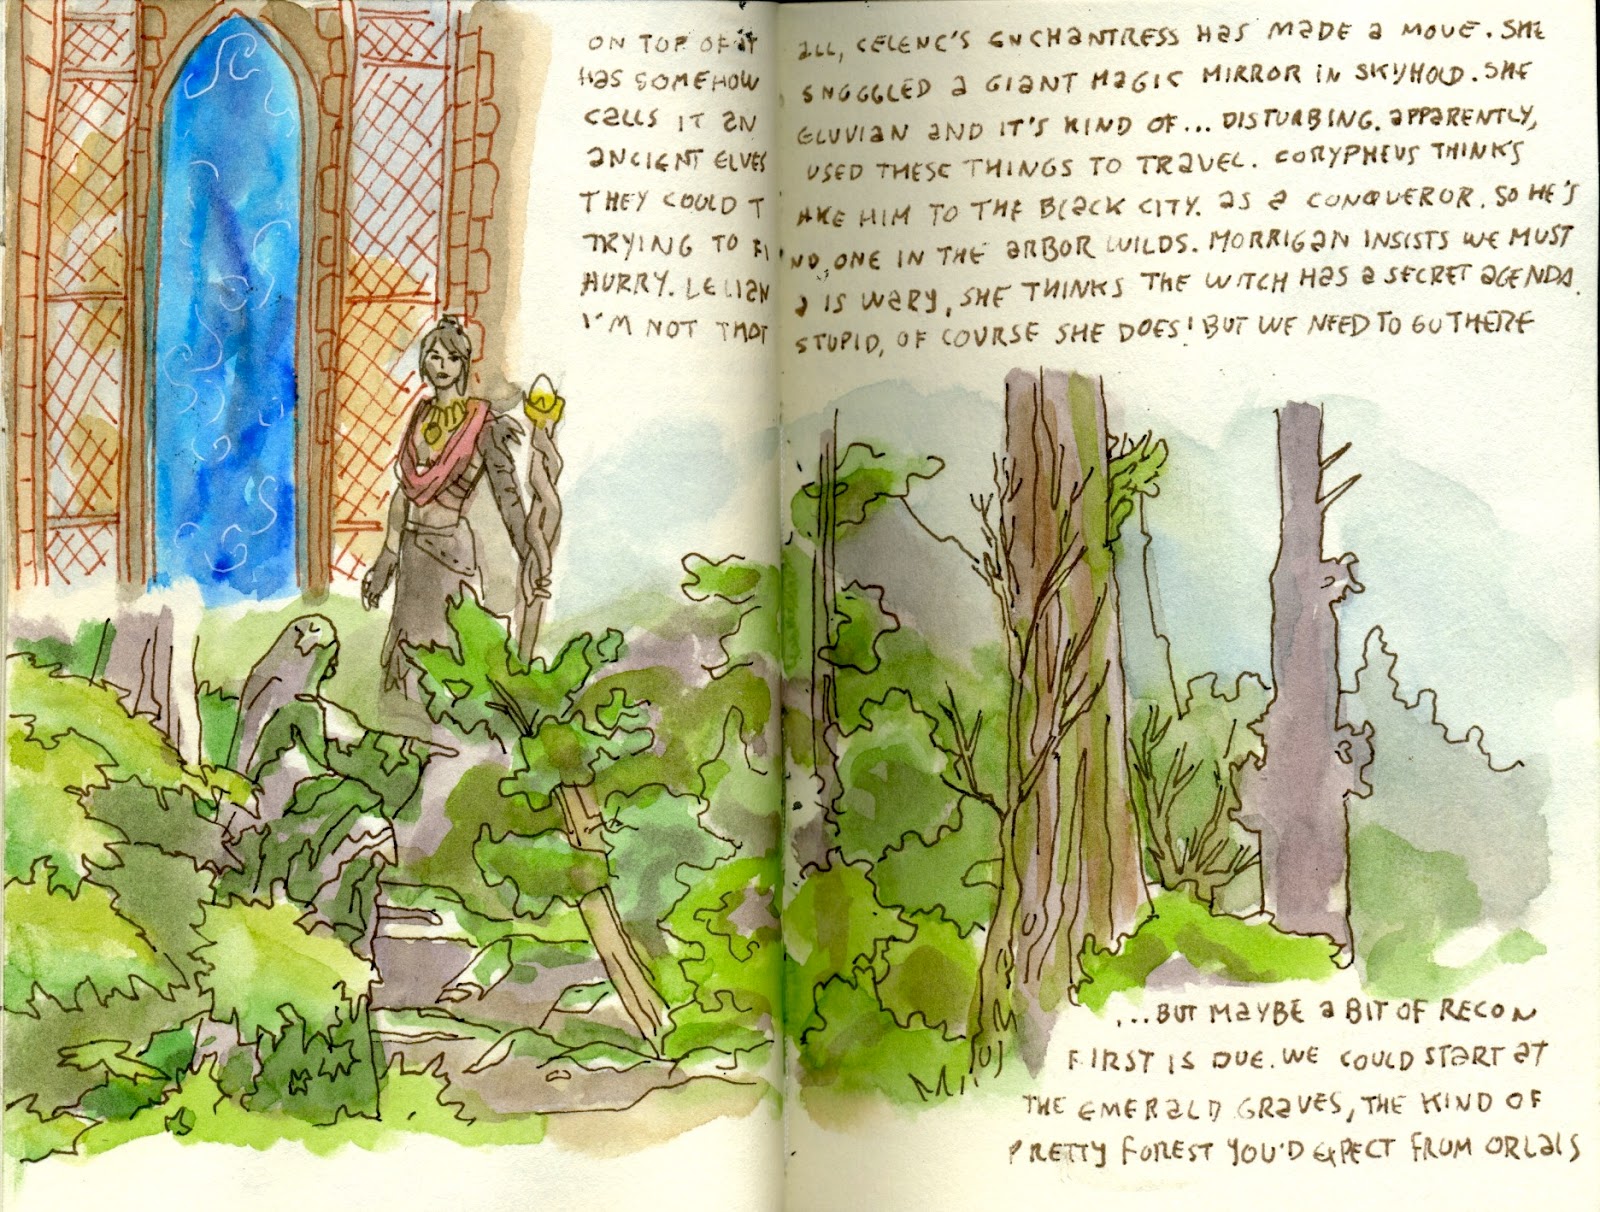 ON TOP OF IT ALL, CELENE'S ENCHANTRESS HAS MADE A MOVE. SHE
HAS SOMEHOW SNGGGLED A GIANT MAGIC MIRROR IN SKYHOLD. SHE
CALLS IT AN ELUVIAN AND IT'S KIND OF... DISTURBING. APPARENTLY,
ANCIENT ELVES USED THESE THINGS TO TRAVEL. CORYPHEUS THINKS
THEY COULD TAKE HIM TO THE BLACK CITY. AS A CONQUEROR. SO HE'S
TRYING TO FIND ONE IN THE ARBOR WILDS. MORRIGAN INSISTS WE MUST
HURRY. LELIANA IS WARY, SHE THINKS THE WITCH HAS A SECRET AGENDA.
I'M NOT THAT STUPID, OF COURSE SHE DOES! BUT WE NEED TO GO THERE
...BUT MAYBE A BIT OF RECON
FIRST IS DUE. WE COULD START AT
THE EMERALD GRAVES, THE KIND OF
PRETTY FOREST YOU'D EXPECT FROM ORLAIS